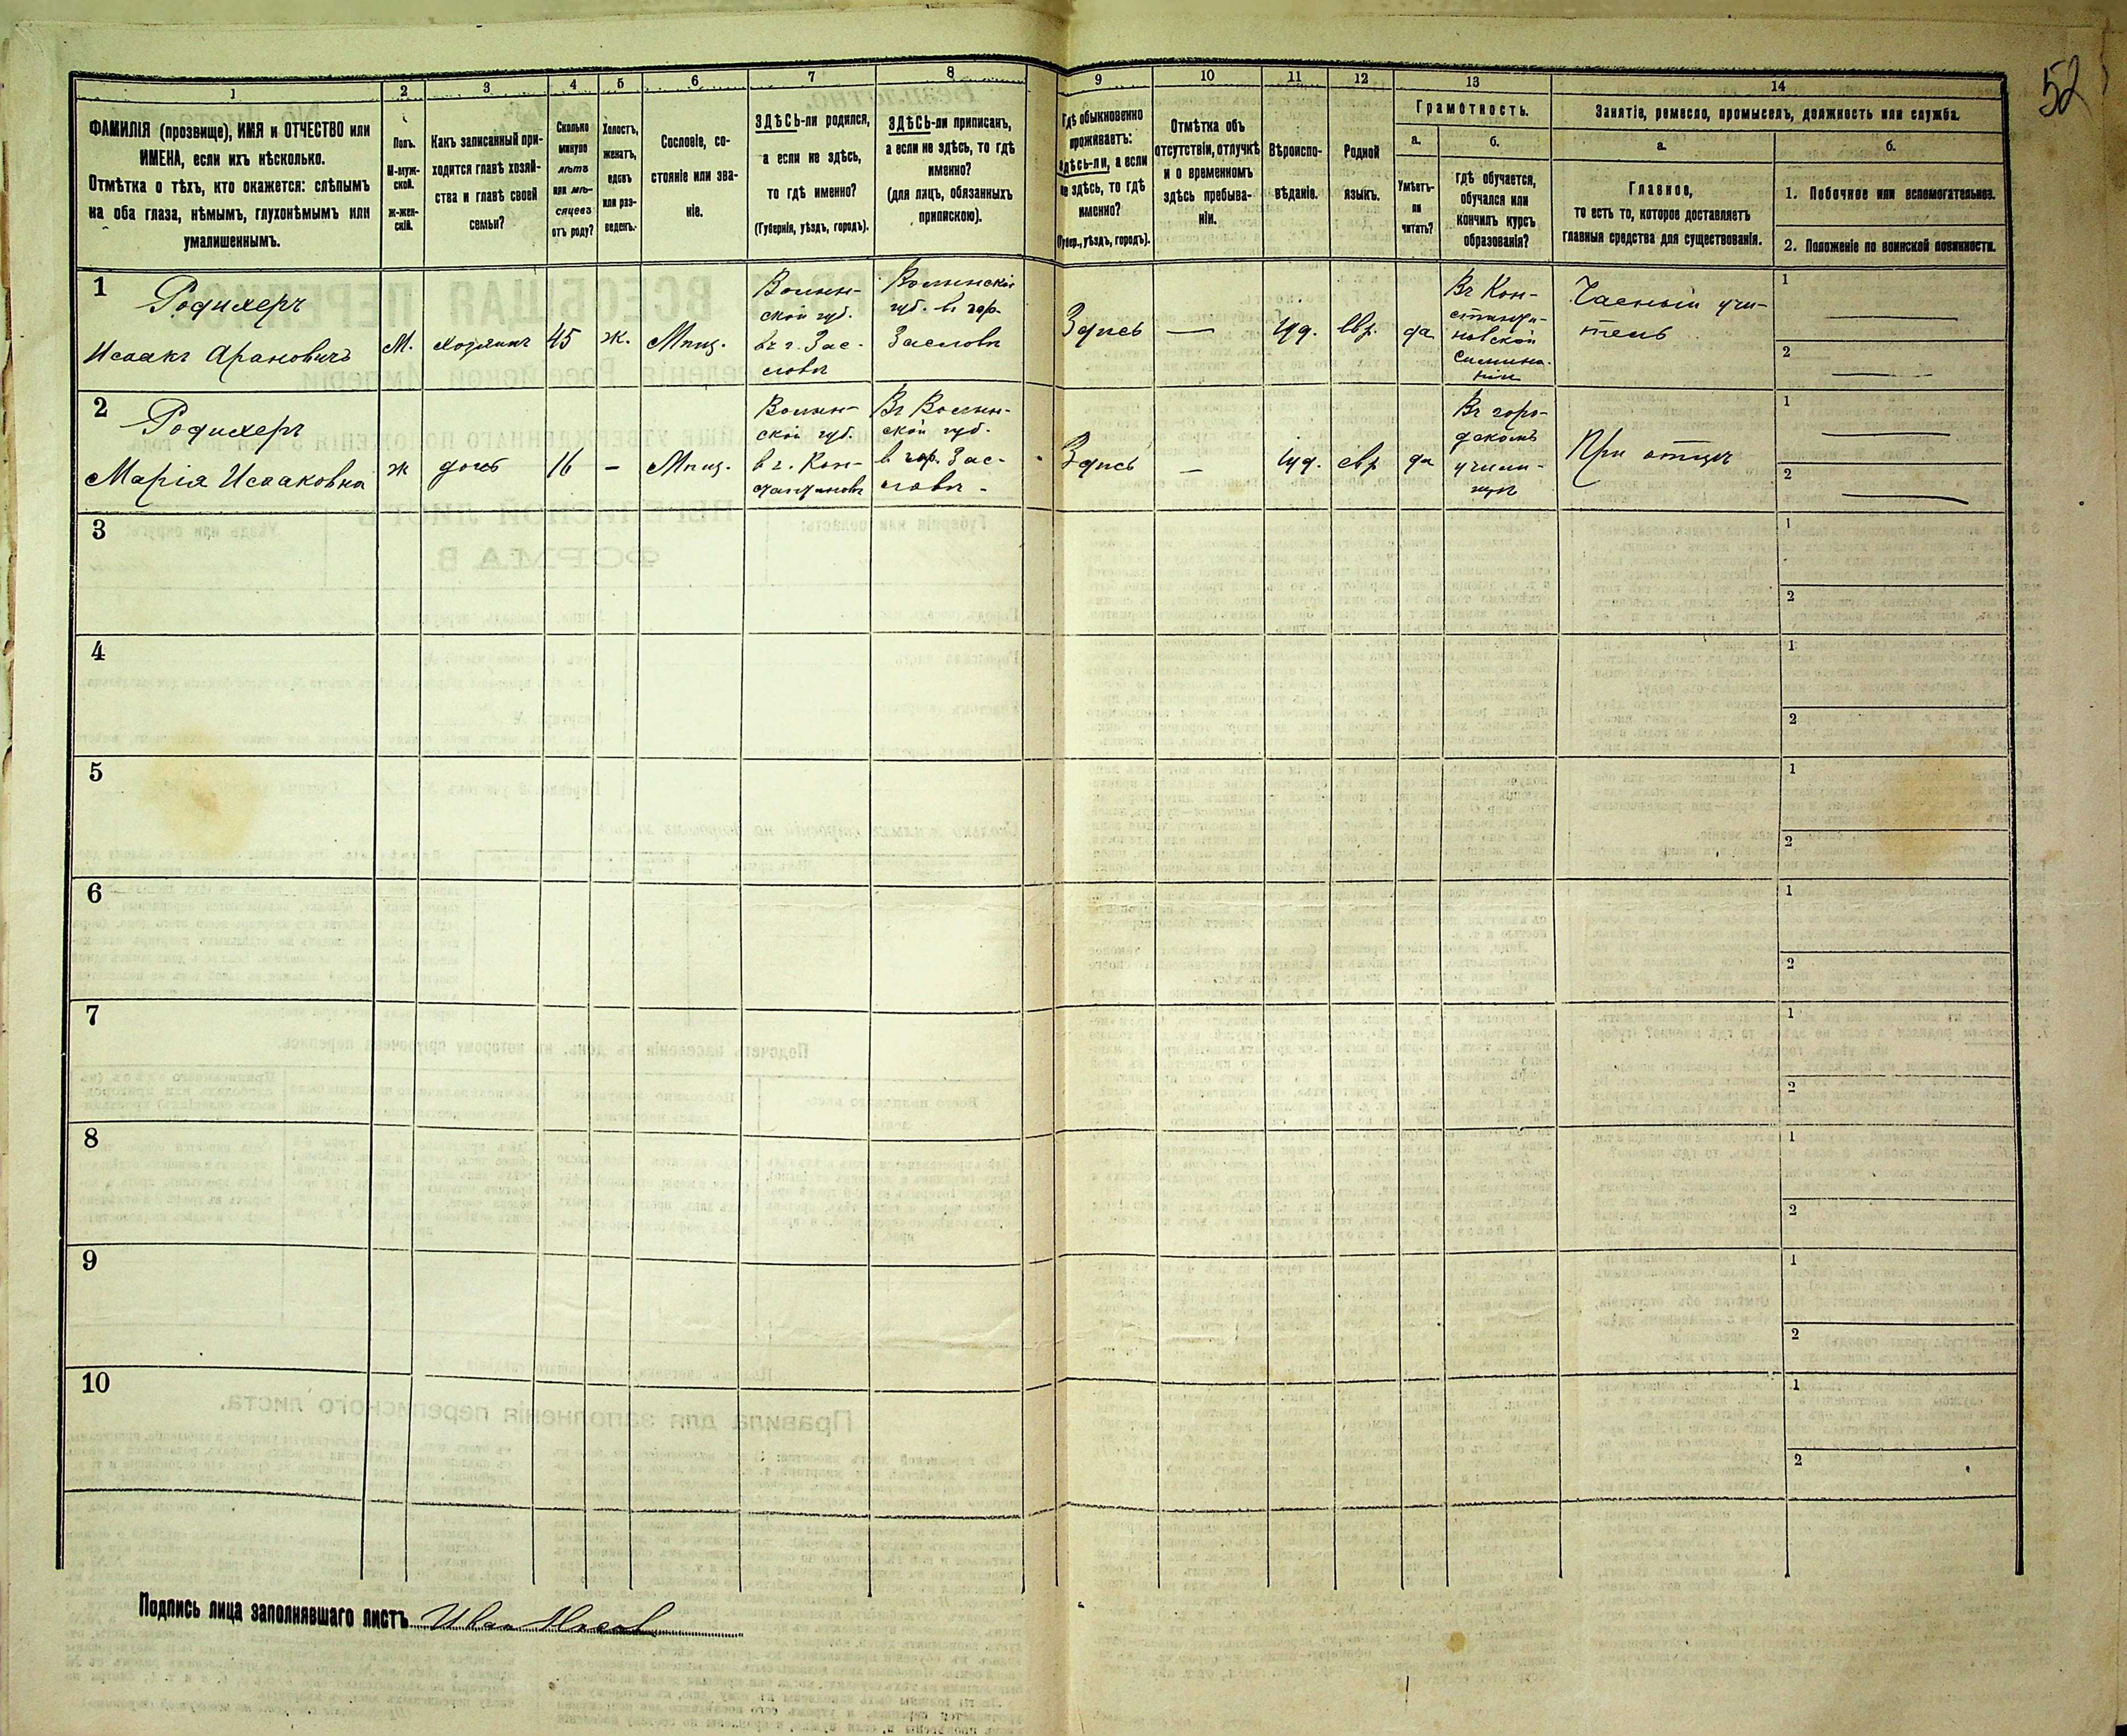 52
1 2 3 4 5 6 7 8 9 10 11 12 13 14
ФАМИЛІЯ (прозвище), ИМЯ и ОТЧЕСТВО или
ИМЕНА, если ихъ нѣсколько.
Отмѣтка о тѣхъ, кто окажется: слѣпымъ
на оба глаза, нѣмымъ, глухонѣмымъ или
умалишеннымъ.
Полъ.
М-муж-
ской.
Ж-жен-
скій.
Какъ записанный при-
ходится главѣ хозяй-
ства и главѣ своей
семьи?
Сколько
минуло
лѣтъ
или мѣ-
сяцевъ
отъ роду?
Холостъ,
женатъ,
вдовъ
или раз-
веденъ.
Сословіе, со-
стояніе или зва-
ніе.
ЗДѢСЬ-ли родился,
а если не здѣсь,
то гдѣ именно?
(Губернія, уѣздъ, городъ).
ЗДѢСЬ-ли приписанъ,
а если не здѣсь, то гдѣ
именно?
(для лицъ, обязанныхъ
припискою).
Гдѣ обыкновенно
проживаетъ:
здѣсь-ли, а если
не здѣсь, то гдѣ
именно?
(Губер., уѣздъ, городъ).
Отмѣтка объ
отсутствіи, отлучкѣ
и о временномъ
здѣсь пребыва-
ніи.
Вѣроиспо-
вѣданіе.
Родной
языкъ.
Грамотность.
а.
Умѣетъ-
ли
читать?
б.
гдѣ обучается,
обучался или
кончилъ курсъ
образованія?
Занятіе, ремесло, промыселъ, должность или служба.
а.
Главное,
то есть то, которое доставляетъ
главныя средства для существованія.
б.
1. Побочное или вспомогательное.
2. Положеніе по воинской повинности.
1
Родихеръ
Исаакъ Арановичъ
М.
хозяинъ
45
ж.
Мѣщ.
Волын-
ской губ.
въ г. Зас-
лавѣ
Волынской
губ. въ гор.
Заславѣ
Здѣсь
—
іуд.
евр.
да
Въ Кон-
станти-
новской
Часный учи-
тель
1
2
2
Родихеръ
Марія Исааковна
ж
дочь
16
–
Мѣщ.
Волын-
ской губ.
в г. Кон-
стантиновѣ
Въ Волын-
ской губ.
в гор. Зас-
лавѣ
Здѣсь
—
іуд.
евр
да
Въ горо-
дскомъ
учили-
щѣ
При отцѣ
1
2
3
1
2
4
1
2
5
1
2
6
1
2
7
1
2
8
1
2
9
1
2
10
1
2
Подпись лица заполнявшаго листъ Иван